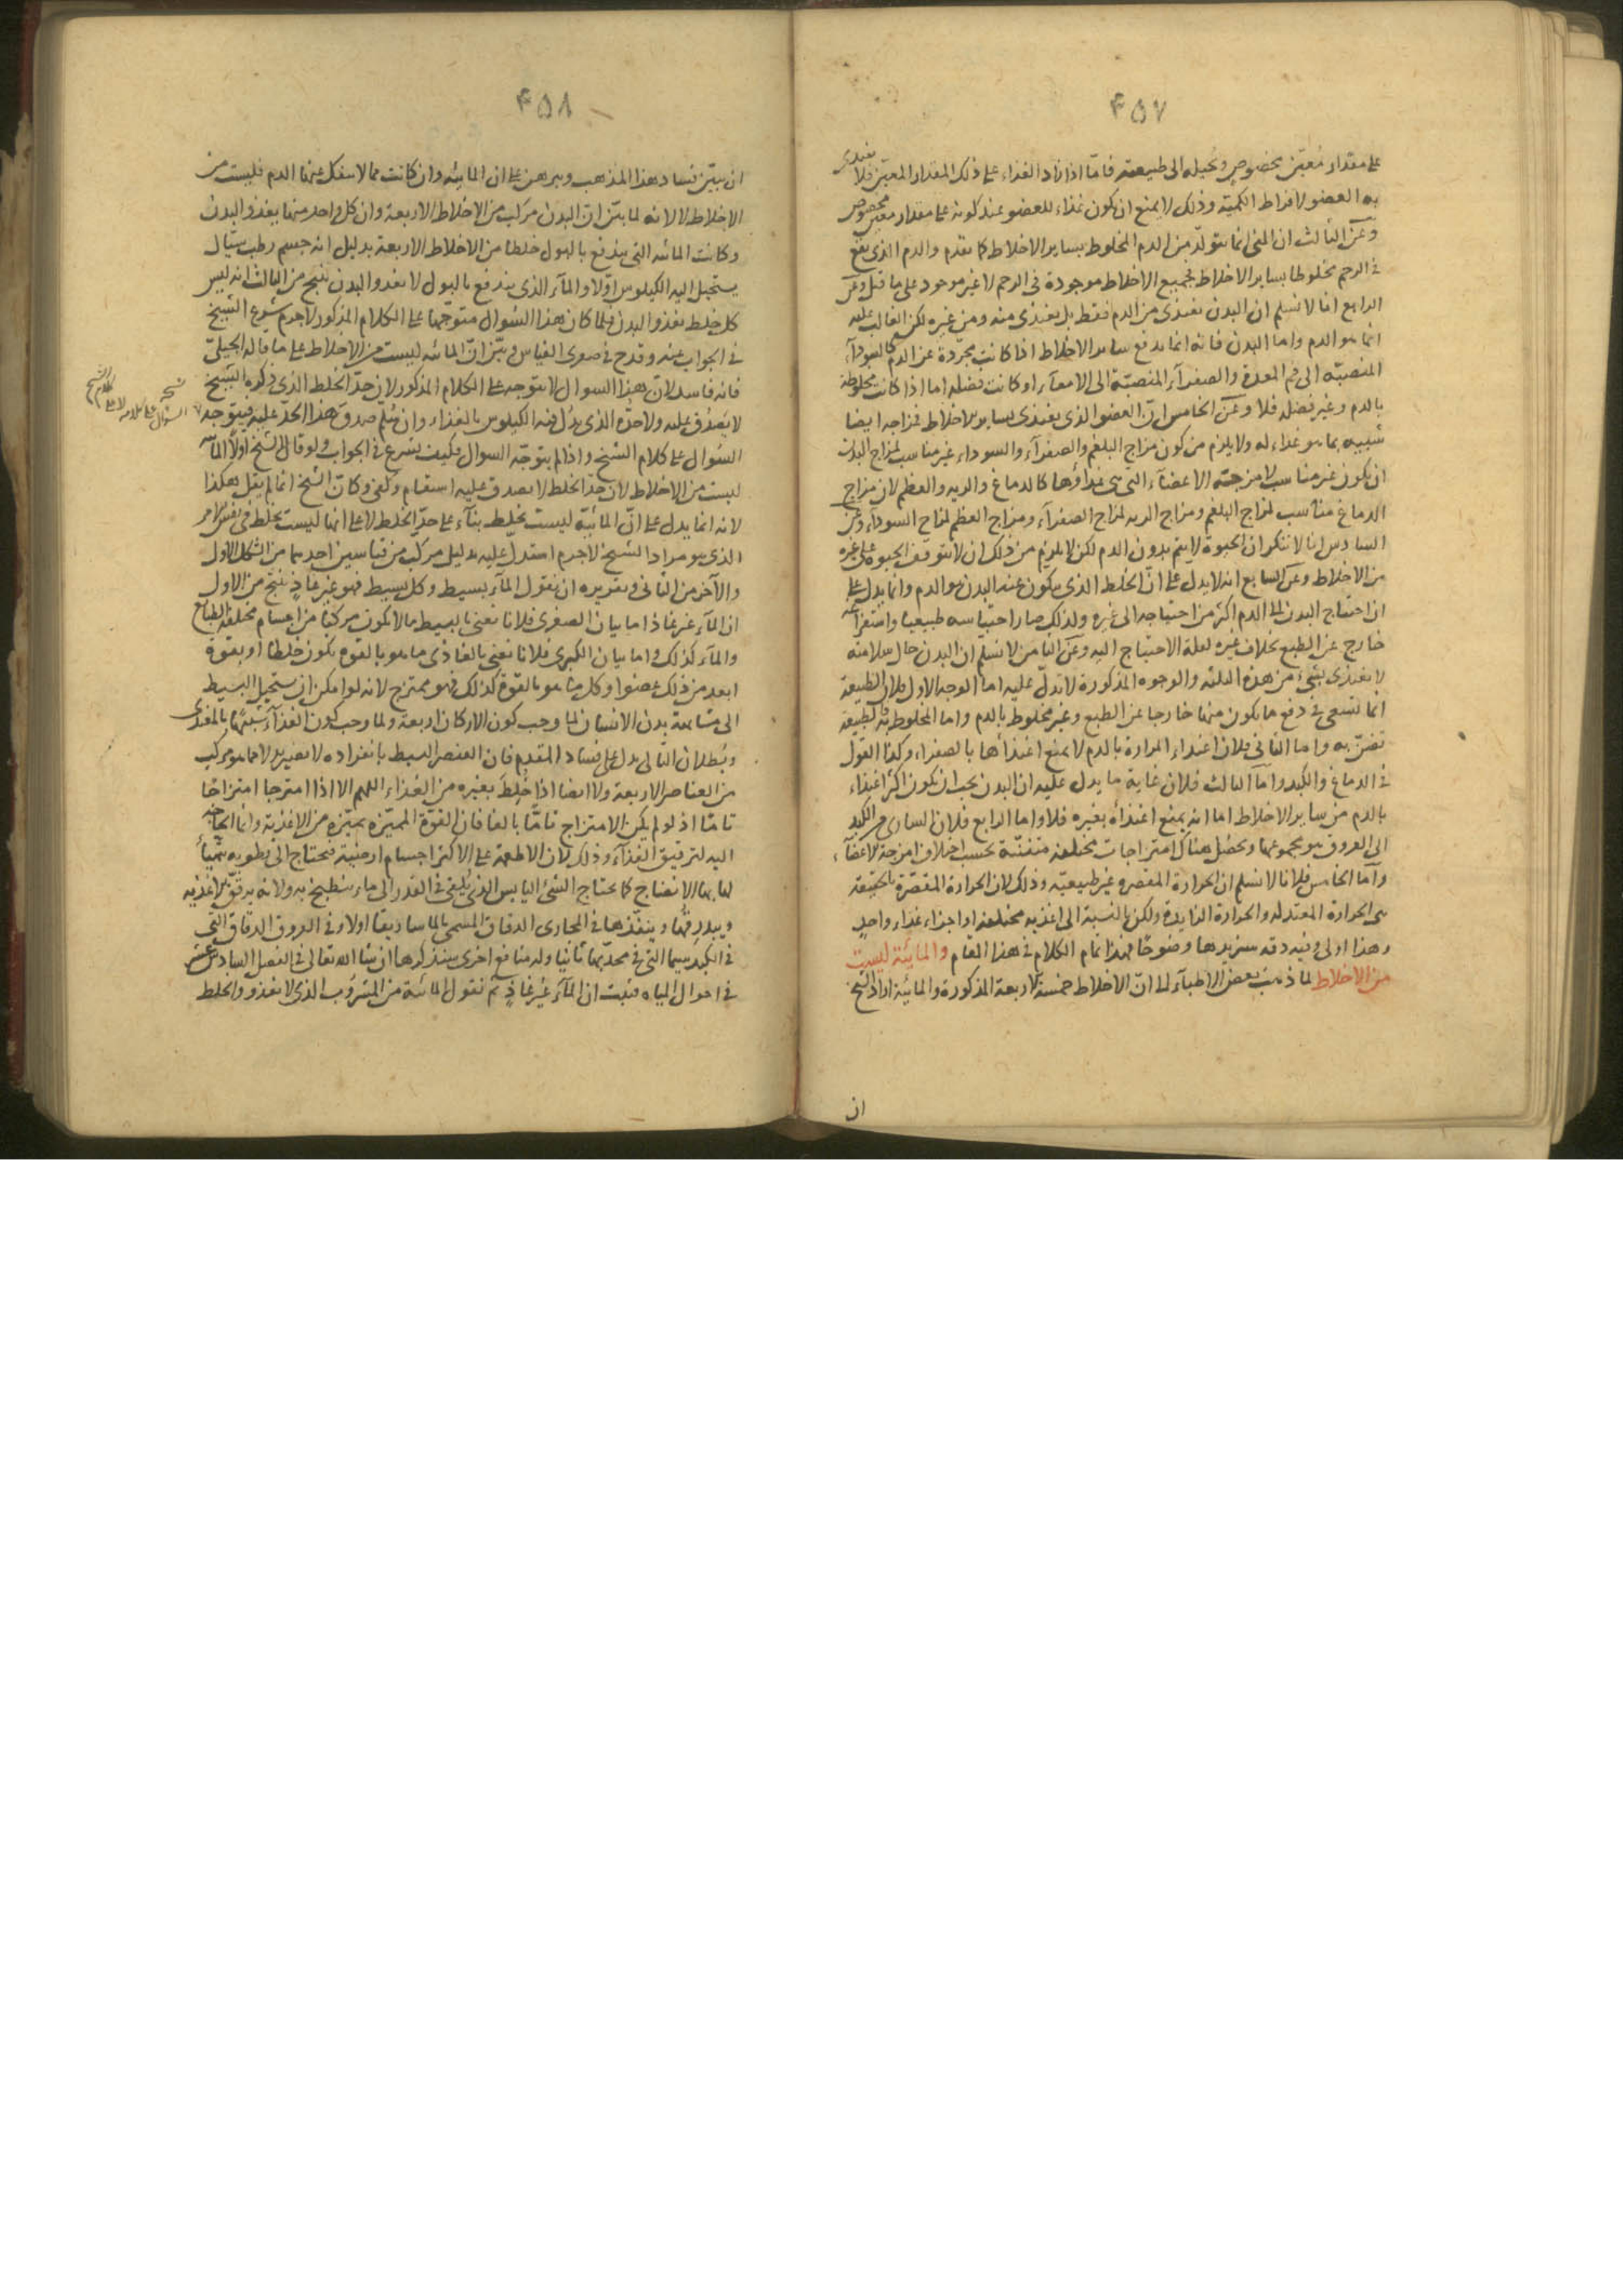 ۴۵۷
على مقدار معيّن مخصوص ويحيله الى طبيعته فامّا اذا زاد الغذاء على ذلك المقدار المعيّن فلا يغتذى
به العضو لافراط الكمية وذلك لا يمنع ان يكون غذاء للعضو عند كونه على مقدار معيّن مخصوص
وعن الثالث ان المنى انما يتولّد من الدم المخلوط بساير الاخلاط كما تقدم والدم الذى يقع
فى الرحم مخلوطا بساير الاخلاط فجميع الاخلاط موجودة فى الرحم لا غير موجود على ما قيل وعن
الرابع انا لا نسلم ان البدن يغتذى من الدم فقط بل يغتذى منه ومن غيره لكن الغالب عليه
انما هو الدم واما البدن فانه انما يدفع ساير الاخلاط اذا كانت مجرّدة عن الدم كالسوداء
المنصبّة الى فم المعدة والصفراء المنصبّة الى الامعاء او كانت فضله اما اذا كانت مخلوطة
بالدم وغير فضله فلا وعن الخامس ان العضو الذى يغتذى بساير الاخلاط فمزاجه ايضا
شبيه بما هو غذاء له ولا يلزم من كون مزاج البلغم والصفراء والسوداء غير مناسب لمزاج البدن
ان يكون غير مناسب لامزجة الاعضاء التى هى غذاؤها كالدماغ والريه والعظم لان مزاج
الدماغ مناسب لمزاج البلغم ومزاج الريه لمزاج الصفراء ومزاج العظم لمزاج السوداء وعن
السادس انا لا ننكر ان الحيوة لا يتم بدون الدم لكن لا يلزم من ذلك ان لا يتوقف الحيوة على غيره
من الاخلاط وعن السابع انه لا يدل على انّ الخلط الذى يتكون عنه البدن هو الدم وانما يدل على
ان احتياج البدن الى الدم اكثر من احتياجه الى غيره ولذلك صار احتباسه طبيعيا واستفراغه
خارج عن الطبع بخلاف غيره لعلة الاحتياج اليه وعن الثامن لا نسلم ان البدن حال سلامته
لا يغتذى بشىء من هذه الثلثه والوجوه المذكورة لا تدلّ عليه اما الوجه الاول فلان الطبيعة
انما تسعى فى دفع ما يكون منها خارجا عن الطبع وغير مخلوط بالدم واما المخلوط به فالطبيعة
تضنّ به واما الثانى فلان اغتذاء المرارة بالدم لا يمنع اغتذائها بالصفراء وكذا القول
فى الدماغ والكبد وامّا الثالث فلان غاية ما يدل عليه ان البدن يجب ان يكون اكثر اغتذاء
بالدم من ساير الاخلاط اما انه يمنع اغتذاؤه بغيره فلا واما الرابع فلان السارى من الكبد
الى العروق هو مجموعها ويحصل هناك امتزاجات مختلفة متفننة بحسب اختلاف امزجة الاعضاء
وامّا الخامس فلانا لا نسلم ان الحرارة المقصره غير طبيعيّه وذلك لان الحرارة المقصّرة بالحقيقة
هى الحرارة المعتدله والحرارة الزايدة ولكن بالنسبة الى اغذيه مختلفه او اجزاء غذاء واحد
وهذا اولى وفيه دقه سنزيدها وضوحًا فهذا تمام الكلام فى هذا المقام والمائيّة ليست
من الاخلاط لما ذهب بعض الاطباء الى انّ الاخلاط خمسة الاربعة المذكورة والمائية اراد الشيخ
ان
۴۵۸
ان يبيّن فساد هذا المذهب ويبرهن على ان المائيه وان كانت مما لا ينفكّ عنها الدم فليست من
الاخلاط لا لانه لما بيّن ان البدن مركب من الاخلاط الاربعة وان كل واحد منها يغذو البدن
وكانت المائيه التى يندفع بالبول خلطا من الاخلاط الاربعة بدليل انه جسم رطب سيّال
يستحيل اليه الكيلوس اوّلا والماء الذى يندفع بالبول لا يغذو البدن ينتج من الثالث انه ليس
كل خلط يغذو البدن فلما كان هذا السؤال متوجها على الكلام المذكور لاجرم شرع الشيخ
فى الجواب عنه وقدح فى صغرى القياس وبيّن انّ المائيه ليست من الاخلاط على ما قاله الجيلىّ
فانه فاسد لان هذا السؤال لا يتوجه على الكلام المذكور لان حدّ الخلط الذى ذكره الشيخ
لا يصدق عليه ولا حدّه الذى بدّل فيه الكيلوس بالغذاء وان سلم صدق هذا الحدّ عليه فيتوجه
السؤال على كلام الشيخ واذا لم يتوجّه السؤال فكيف شرع فى الجواب ولو قال الشيخ اولا المائيه
ليست من الاخلاط لان حدّ الخلط لا يصدق عليه استقام وكفى وكان الشيخ انما لم يقل هكذا
لانه انما يدل على انّ المائيّة ليست بخلط بناء على حدّ الخلط لا على انها ليست بخلط فى نفس الامر
الذى هو مراد الشيخ لاجرم استدلّ عليه بدليل مركب من قياسين احدهما من الشكل الاول
والآخر من الثانى وتقريره ان نقول الماء بسيط وكل بسيط فهو غير غاذٍ ينتج من الاول
ان الماء غير غاذ اما بيان الصغرى فلانا نعنى بالبسيط ما لا يكون مركبا من اجسام مختلفة الطباع
والماء كذلك واما بيان الكبرى فلانا نعنى بالغاذى ما هو بالقوة يكون خلطا او بقوة
ابعد من ذلك عضوا وكل ما هو بالقوة كذلك فهو ممتزج لانه لو امكن ان يستحيل البسيط
الى مشابهة بدن الانسان لما وجب كون الاركان اربعة ولما وجب كون الغذاء شبيها بالمغتذى
وبطلان التالى يدل على فساد المقدم فان العنصر البسيط بانفراده لا يصير بدلا عما هو مركب
من العناصر الاربعة ولا ايضا اذا خُلِط بغيره من الغذاء اللهم الا اذا امتزجا امتزاجًا
تامًا اذ لو لم يكن الامتزاج تامًّا بالغا فان القوّة المميّزه تميّزه من الاغذية وانما الحاجة
اليه لترقيق الغذاء وذلك لان الاطعمة على الاكثر اجسام ارضية فتحتاج الى رطوبه تهيّأ
لها بها الانضاج كما يحتاج الشئ اليابس الذى يلقى فى القدر الى ماء ينطبخ به ولانه يرقّق الاغذيه
ويبدرقها وينفّذها فى المجارى الدقاق المسمى بالماساريقا اولا وفى العروق الدقاق التى
فى الكبد سيما التى فى محدّبها ثانيا وله منافع اخرى سنذكرها ان شا الله تعالى فى الفصل السادس عشر
فى احوال المياه فثبت ان الماء غير غاذٍ ثم نقول المائية من المشروب الذى لا يغذو والخلط